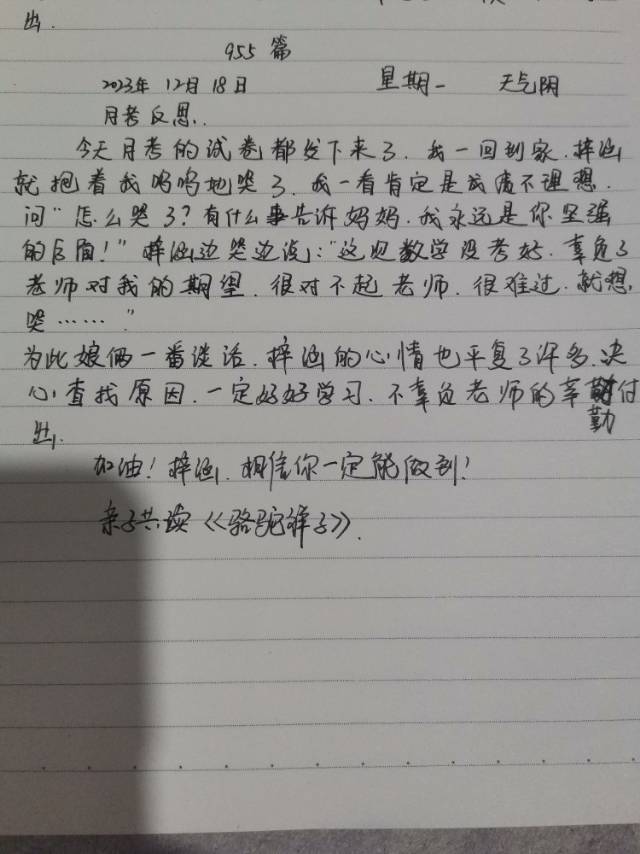 出.
955 篇
2023年 12月 18日 星期一 天气阴
月考反思..
今天月考的试卷都发下来了.我一回到家.梓涵
就抱着我呜呜地哭了.我一看肯定是成绩不理想.
问"怎么哭了?有什么事告诉妈妈.我永远是你坚强
的后盾!"梓涵边哭边说:"这次数学没考好.辜负了
老师对我的期望.很对不起老师.很难过.就想
哭……"
为此娘俩一番谈话.梓涵的心情也平复了许多.决
心查找原因.一定好好学习.不辜负老师的辛勤付
出.
加油!梓涵.相信你一定能做到!
亲子共读《骆驼祥子》.